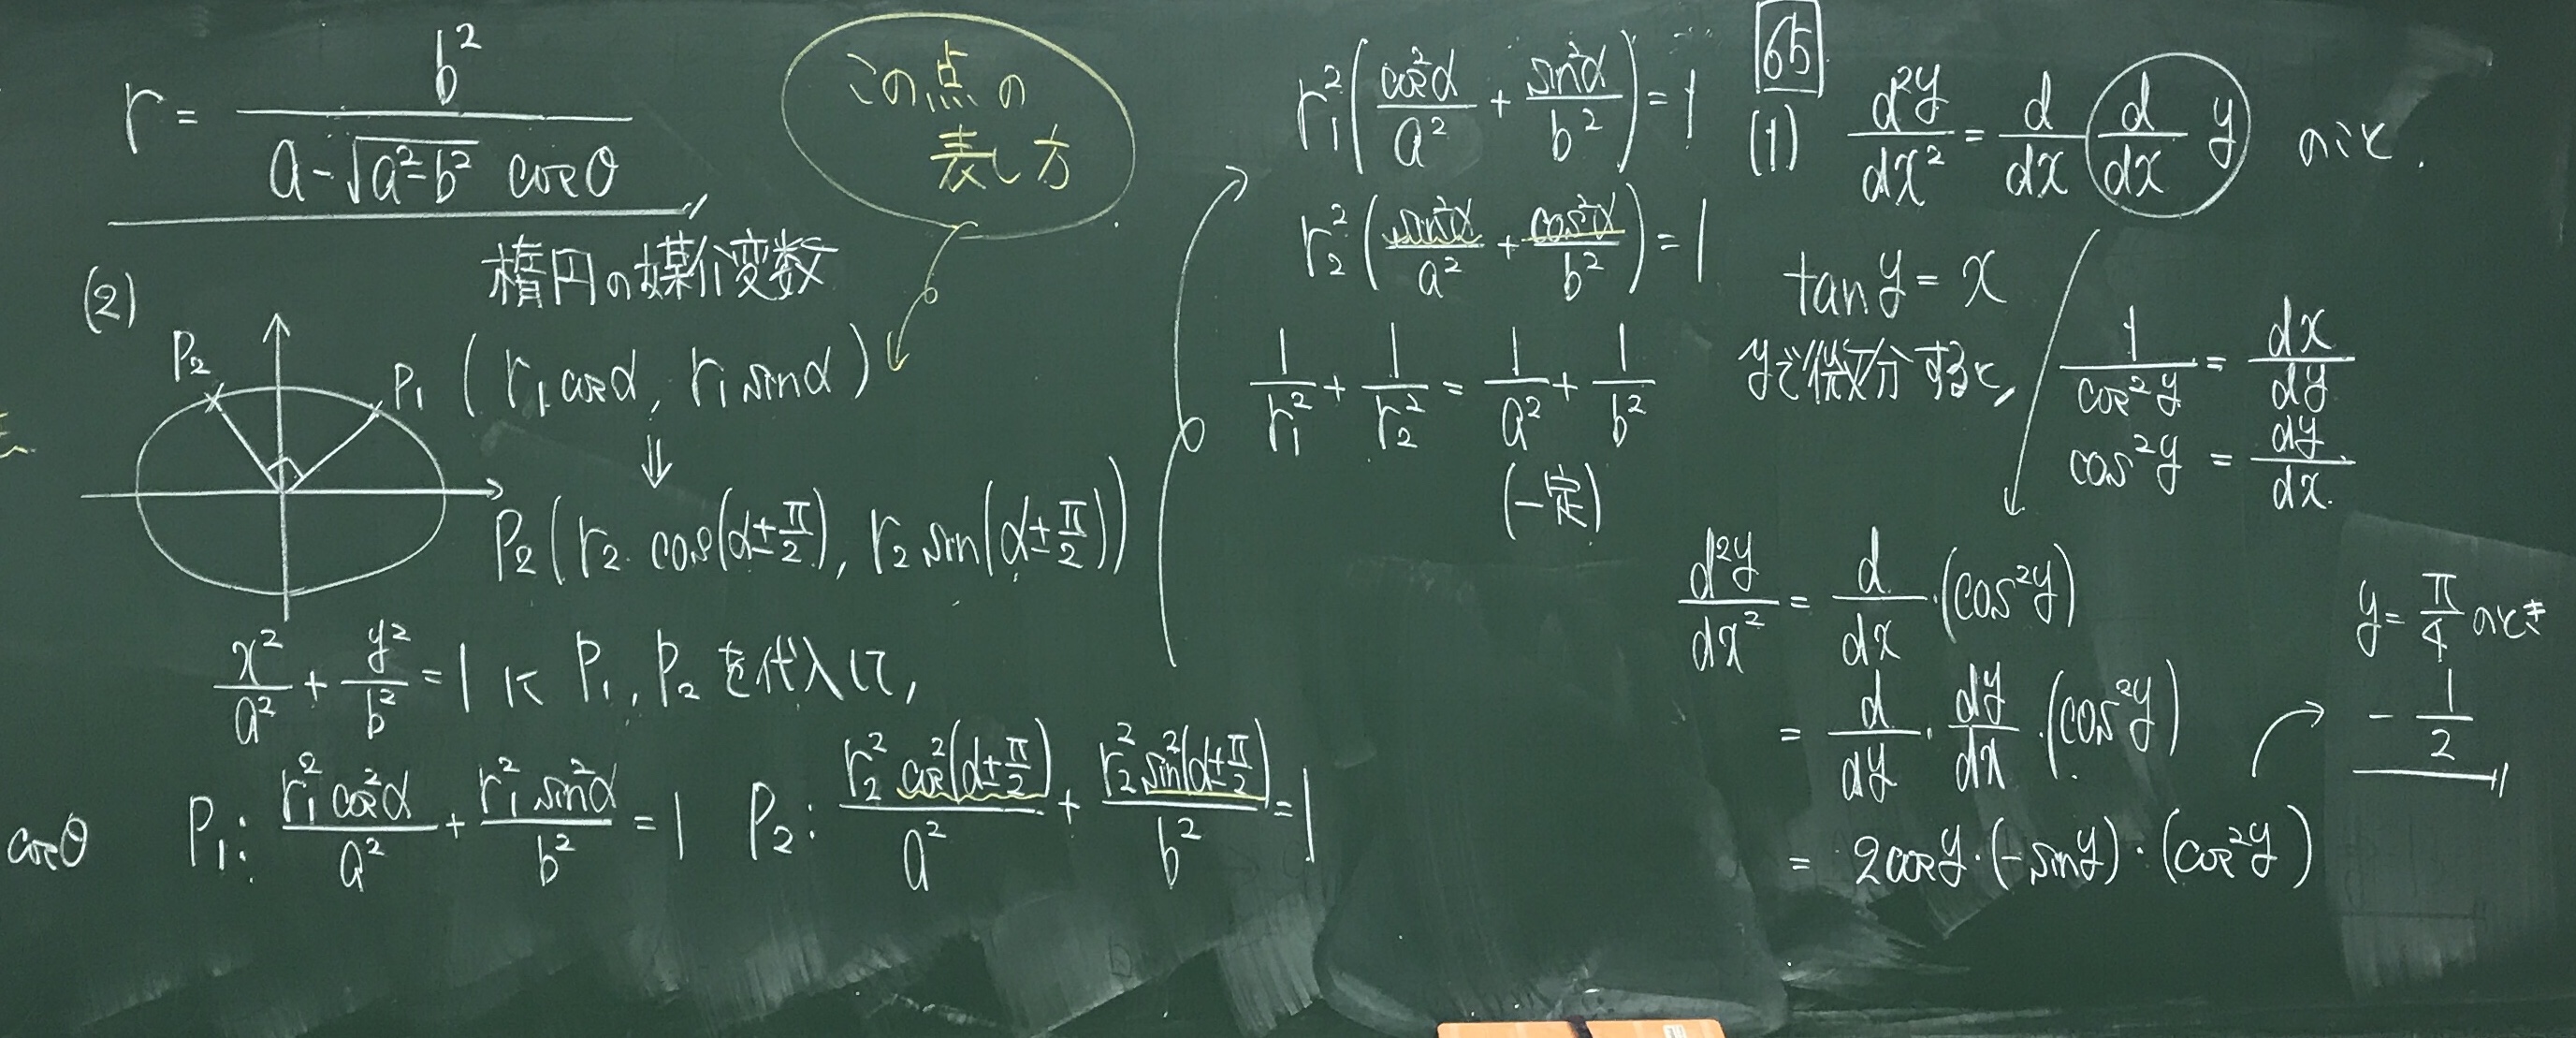 r = b² / (a - √(a²-b²) cosθ)
この点の
表し方
(2)
楕円の媒介変数
P₂
P₁ (r₁cosα, r₁sinα)
⇓
P₂(r₂ cos(α±π/2), r₂ sin(α±π/2))
x²/a² + y²/b² = 1 に P₁, P₂ を代入して,
cosθ
P₁: r₁²cos²α/a² + r₁²sin²α/b² = 1 P₂: r₂²cos²(α±π/2)/a² + r₂²sin²(α±π/2)/b² = 1
r₁²(cos²α/a² + sin²α/b²) = 1
r₂²(sin²α/a² + cos²α/b²) = 1
1/r₁² + 1/r₂² = 1/a² + 1/b²
(一定)
65
(1) d²y/dx² = d/dx d/dx y のこと.
tan y = x
yで微分すると, 1/cos²y = dx/dy
cos²y = dy/dx
d²y/dx² = d/dx・(cos²y)
= d/dy・dy/dx・(cos²y)
= 2cosy・(-siny)・(cos²y)
y = π/4 のとき
- 1/2